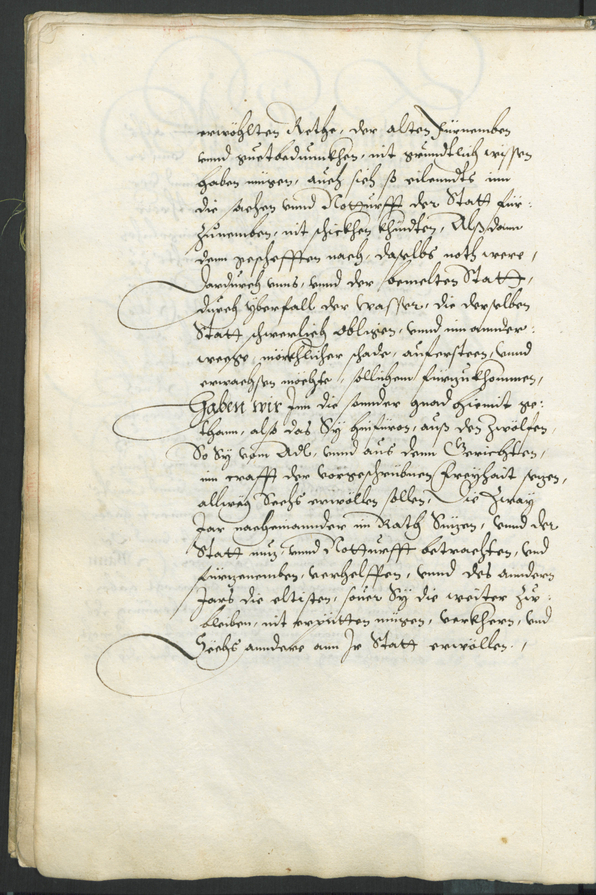 erwöhlten Rethe, der alten Fürnemben
vnnd guetbedunckhen, nit gründtlich wissen
haben mügen, auch sich so eilenndts inn
die sachen vnnd Notturfft der Statt für:
zunemben, nit schickhen khündten, Alß dann
denn geschefften nach, daselbs noth were,
Dardurch vnns, vnnd der bemelten Statt,
durch überfall der wasser, die derselben
Statt schwerlich obligen, vnnd inn annder:
wege, mörckhlicher schade, aufersteen, vnnd
erwachsen möchte, sollichem fürzukhommen,
Haben wir Inn die sonnder gnad hiemit ge:
thann, also das Sy hinfüron, auß den Zwölfen,
So Sy vom Adl, vnnd aus denn Gerichten,
inn crafft der vorgeschribnen freyhait setzen,
allweg Sechs erwöllen sollen, Die Zway
Jar nacheinannder im Rath Sitzen, vnnd der
Statt nuz, vnnd Notturfft betrachten, vnd
fürzenemben, verhelffen, vnnd des anndern
Jars die eltisten, souer Sy die weiter zu:
bleiben, nit erpitten mügen, verkhern, vnd
Sechs anndere ann Jr Statt erwöllen.